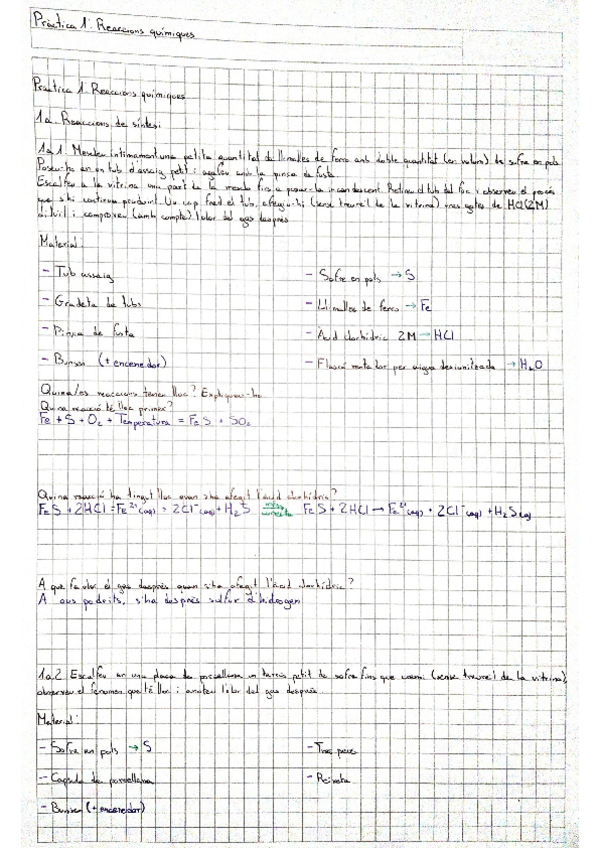 Pràctica 1: Reaccions químiques
Pràctica 1. Reaccions químiques
1a. Reaccions de síntesi
1a.1. Mescleu intimament una petita quantitat de llimalles de ferro amb doble quantitat (en volum) de sofre en pols.
Poseu-ho en un tub d'assaig petit i agafeu amb la pinça de fusta.
Escalfeu a la vitrina una part de la mescla fins a posar-la incandescent. Retireu el tub del foc i observeu el procés
que s'hi continua produint. Un cop fred el tub, afegiu-hi (sense treure'l de la vitrina) unes gotes de HCl(2M)
diluït i comproveu (amb compte) l'olor del gas després
Material:
- Tub assaig
- Sofre en pols → S
- Gradeta de tubs
- Llimalles de ferro → Fe
- Pinça de fusta
- Àcid clorhídric 2M → HCl
- Bunsen (+ encenedor)
- Flascó rentador per aigua desionitzada → H2O
Quina/es reaccions tenen lloc? Expliqueu-ho
Quina reacció té lloc primer?
Fe + S + O2 + Temperatura = FeS + SO2
Quina reacció ha tingut lloc quan s'ha afegit l'àcid clorhídric?
FeS + 2HCl = Fe2+(aq) + 2Cl-(aq) + H2S FeS + 2HCl → Fe2+(aq) + 2Cl-(aq) + H2S(g)
A que fa olor el gas després quan s'ha afegit l'àcid clorhídric?
A ous podrits, s'ha després sulfur d'hidrogen
1a2. Escalfeu en una placa de porcellana un tarròs petit de sofre fins que cremi (sense treure'l de la vitrina),
observeu el fenomen que té lloc i anoteu l'olor del gas després.
Material:
- Sofre en pols → S
- Tres peus
- Capsula de porcellana
- Reixeta
- Bunsen (+ encenedor)